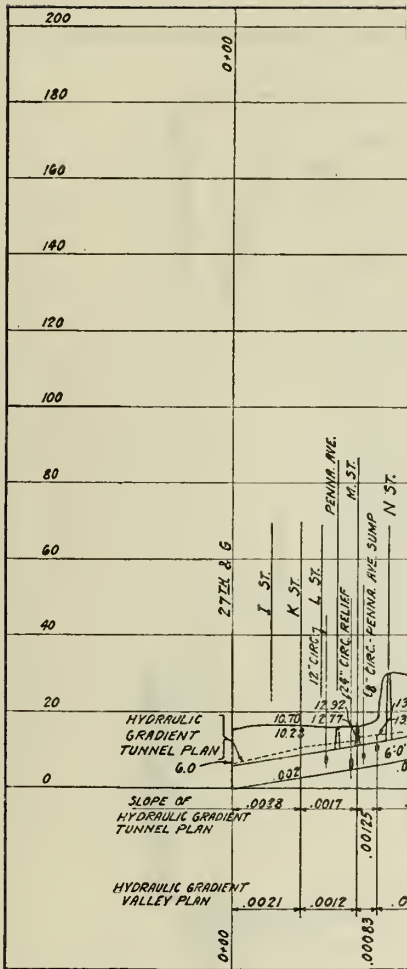 200
0+00
180
160
140
120
100
80
60
40
20
0
27TH & G
I ST.
K ST.
12" CIRC.
L ST.
PENNA. AVE.
24" CIRC. RELIEF
M. ST.
18" CIRC.- PENNA. AVE. SUMP
N ST.
HYDRAULIC
GRADIENT
TUNNEL PLAN
6.0
10.70
10.23
12.92
12.77
13
13
6'-0"
0.02
.0
SLOPE OF
HYDRAULIC GRADIENT
TUNNEL PLAN
.0028
.0017
.00125
HYDRAULIC GRADIENT
VALLEY PLAN
.0021
.0012
.00083
.0
0+00